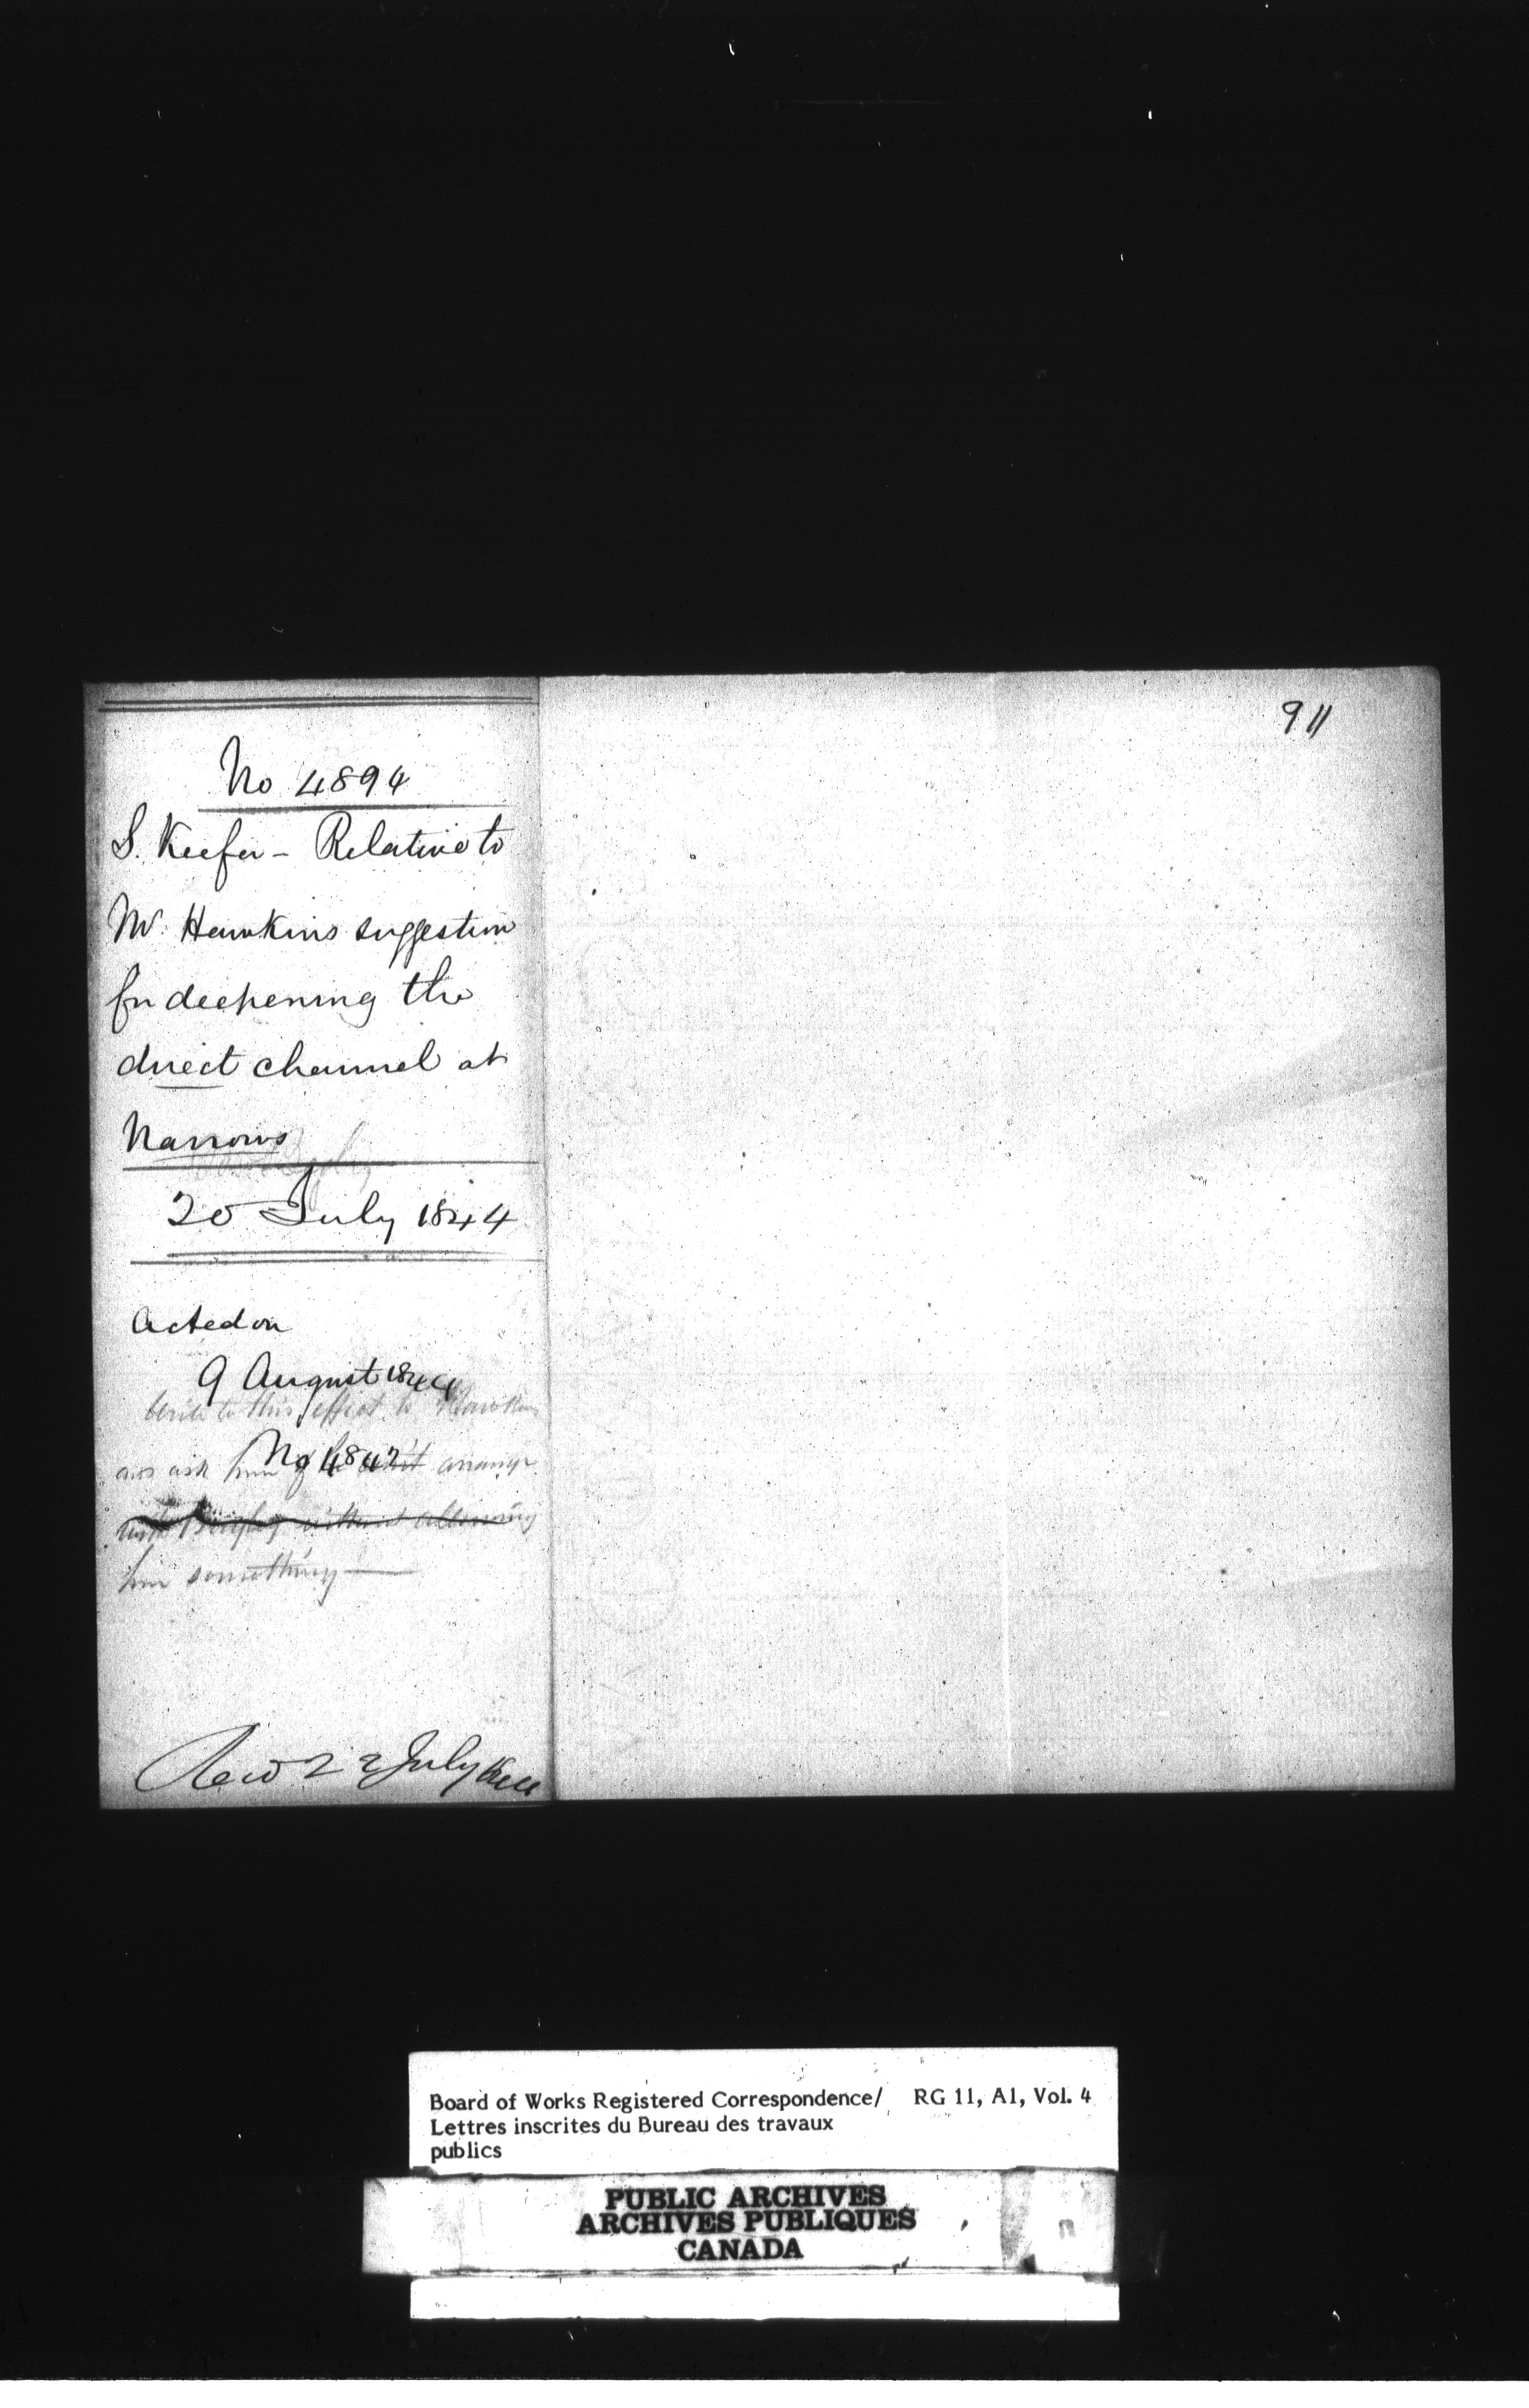 911
No 4894
S. Keefer - Relative to
Mr. Hawkins suggestion
for deepening the
direct channel at
Narrows
20 July 1844
Acted on
9 August 1844
write to this effect to Hawkins
and ask him if he can't arrange
No 4842
with Bigley without allowing
him something
Recd 22 July 1844
Board of Works Registered Correspondence/ RG 11, A1, Vol. 4
Lettres inscrites du Bureau des travaux
publics
PUBLIC ARCHIVES
ARCHIVES PUBLIQUES
CANADA